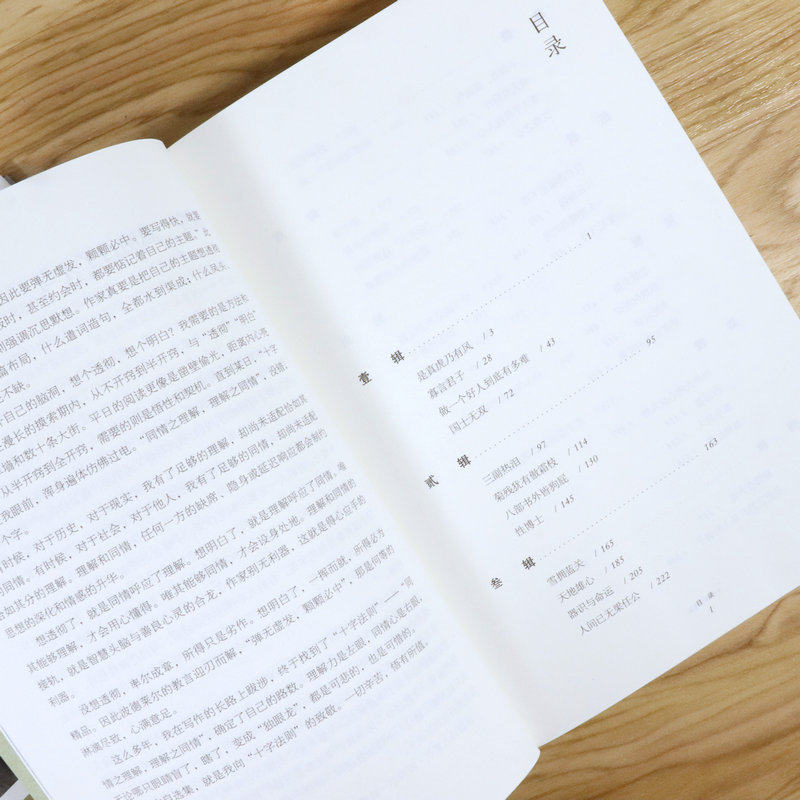 因此要弹无虚发，颗颗必中。要写得快，就要
时，甚至约会时，都要惦记着自己的主题。”此
强调沉思默想。作家真要是把自己的主题想透彻
布局，什么遣词造句，全都水到渠成；什么凤头
不缺。
自己的脑洞，想个透彻，想个明白？我需要的是方法和
漫长的摸索期内，从不开窍到半开窍，与“透彻”“明白”
墙和数十条大街。平日的阅读更像是凿壁偷光，距离内心亮
从半开窍到全开窍，需要的则是悟性和契机。直到某日，“十字
我眼前，浑身遍体仿佛过电。“同情之理解，理解之同情”，没错，
个字。
时候，对于历史，对于现实，我有了足够的理解，却尚未适配恰如其
同情。有时候，对于社会，对于他人，我有了足够的同情，却尚未适配
恰如其分的理解。理解和同情，任何一方的缺席，隐身或延迟响应都会制约
思想的深化和情感的升华。
想透彻了，就是同情呼应了理解。想明白了，就是理解呼应了同情。唯
其能够理解，才会用心懂得。唯其能够同情，才会设身处地。理解和同情的
榫轨，就是智慧头脑与善良心灵的合龙，作家别无利器，这就是得心应手的
利器。
没想透彻，率尔成章，所得只是劣作。想明白了，一挥而就，所得必为
精品。因此波德莱尔的教言迎刃而解，“弹无虚发，颗颗必中”，那是何等的
淋漓尽致，心满意足。
这么多年，我在写作的长路上跋涉，终于找到了“十字法则”——“同
情之理解，理解之同情”，确定了自己的路数。理解力是左眼，同情心是右眼，
无论哪只眼睛盲了，瞎了，变成“独眼龙”，都是可悲的，也是可惜的。
自选集，就是我向“十字法则”的致敬。一切辛苦，倍有所值。
目录
壹 辑 1
是真虎乃有风 / 3
寡言君子 / 28
做一个好人到底有多难 / 43
国士无双 / 72
贰 辑 95
三副热泪 / 97
菊残犹有傲霜枝 / 114
八部书外皆狗屁 / 130
性博士 / 145
叁 辑 163
雪拥蓝关 / 165
天地雄心 / 185
器识与命运 / 205
人间已无果任公 / 222
目 录
1